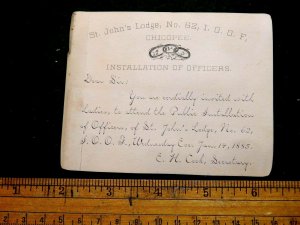 St. John's Lodge, No. 62, I. O. O. F.
CHICOPEE.
INSTALLATION OF OFFICERS.
Dear Sir:
You are cordially invited with
Ladies, to attend the Public Installation
of Officers, of St. John's Lodge, No. 62,
I. O. O. F., Wednesday Eve. Jan. 14, 1885.
Secretary.
1
2
3
4
5